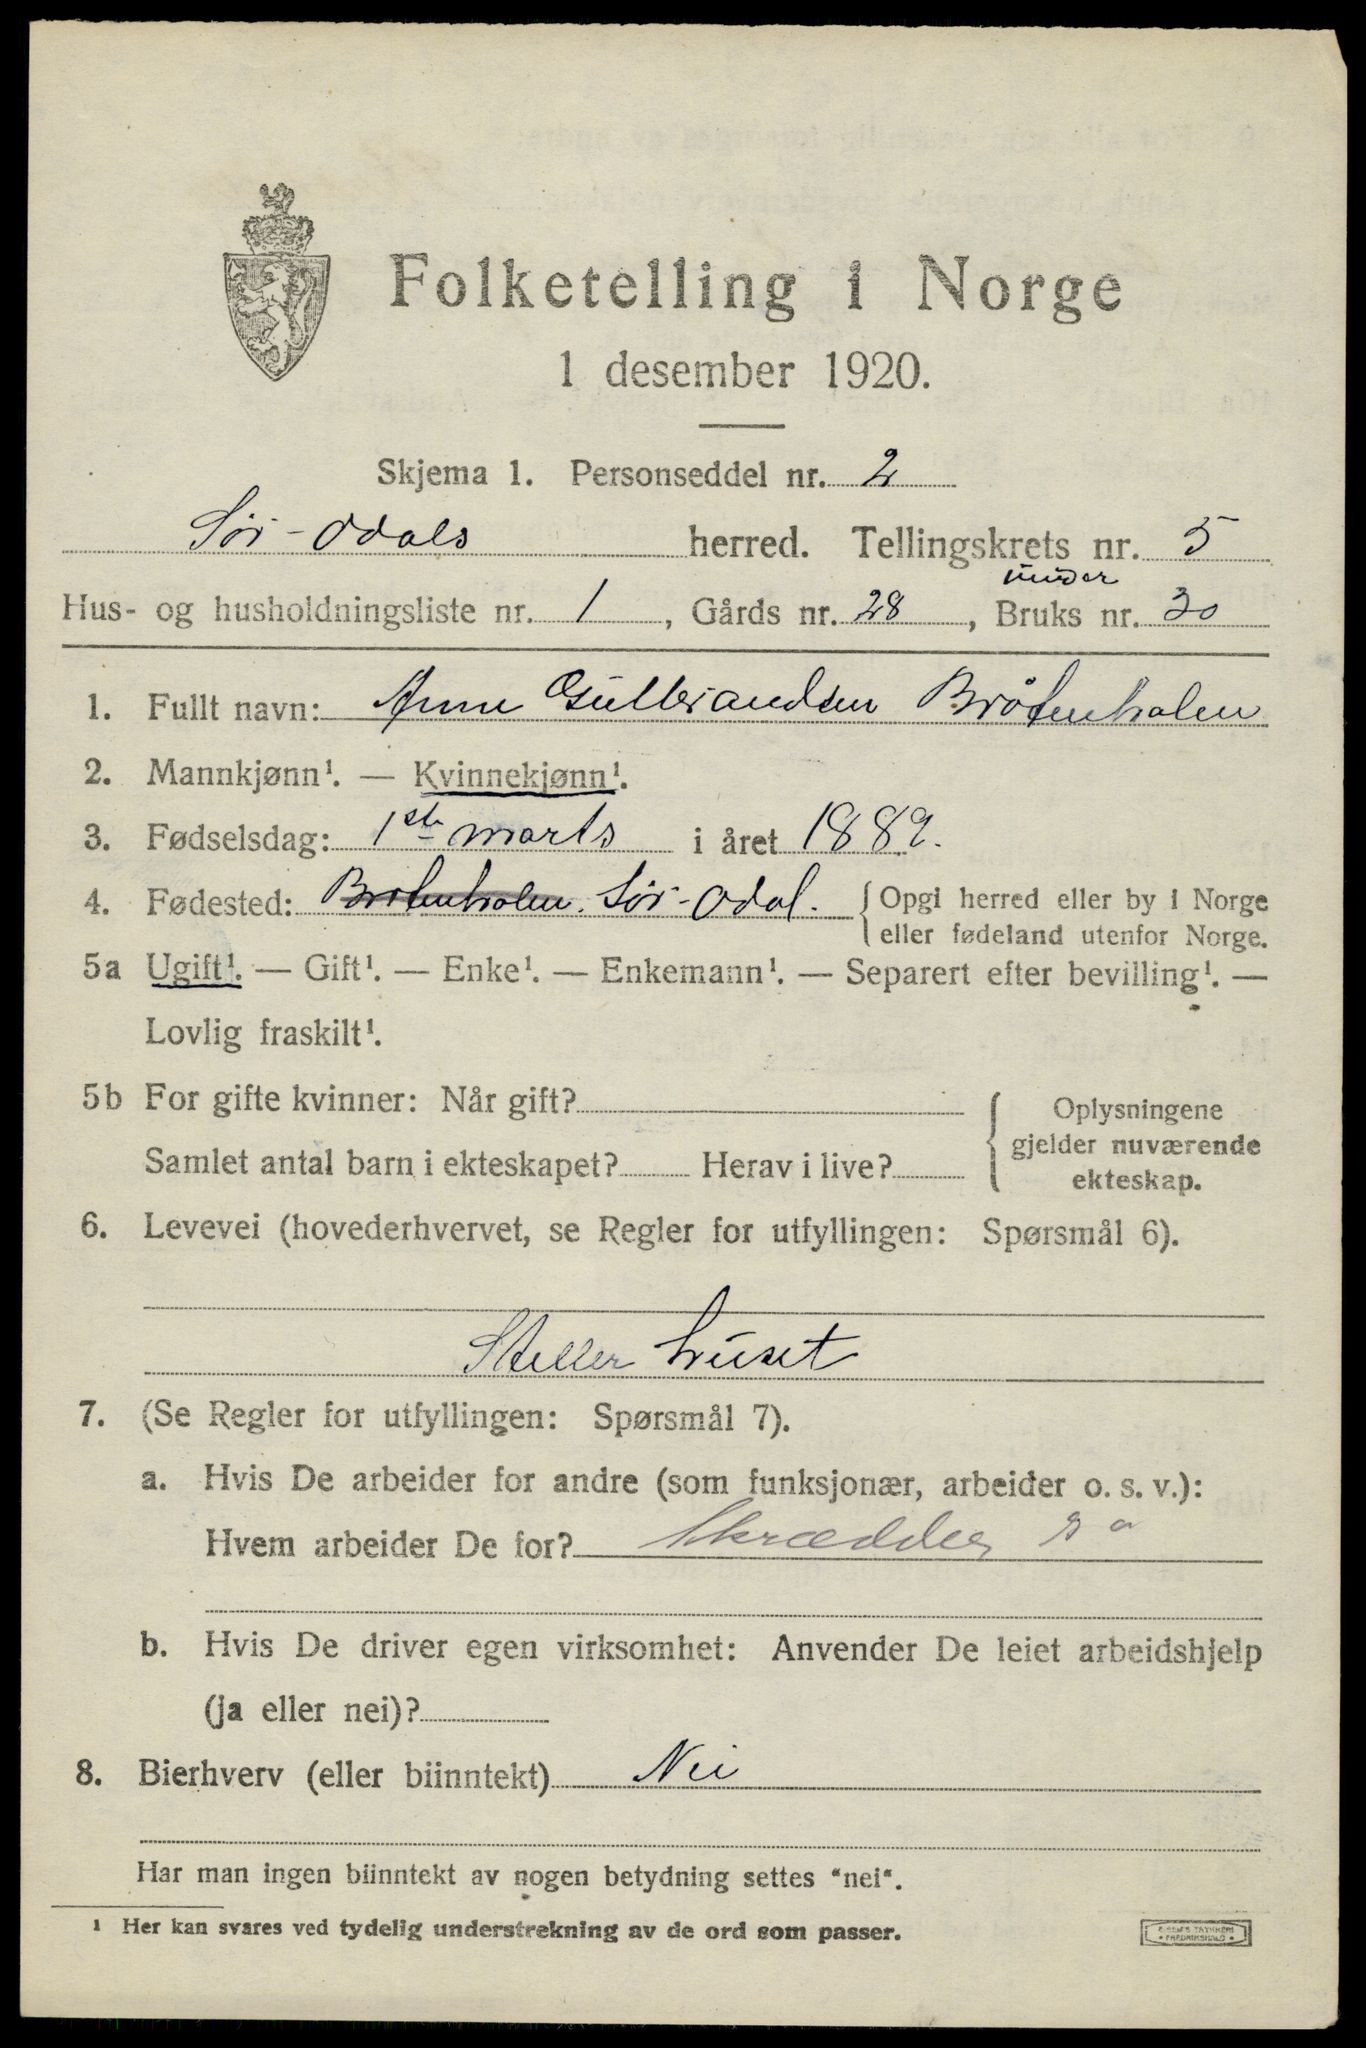 Folketelling i Norge
1 desember 1920.
Skjema 1. Personseddel nr. 2
Sør-Odals herred. Tellingskrets nr. 5
under
Hus- og husholdningsliste nr. 1, Gårds nr. 28, Bruks nr. 30
1. Fullt navn: Anne Gulbrandsen Bråtenholen
2. Mannkjønn¹. — Kvinnekjønn¹.
3. Fødselsdag: 1ste marts i året 1889.
4. Fødested: Bråtenholen. Sør-Odal. { Opgi herred eller by i Norge
eller fødeland utenfor Norge.
5a Ugift¹. — Gift¹. — Enke¹. — Enkemann¹. — Separert efter bevilling¹. —
Lovlig fraskilt¹.
5b For gifte kvinner: Når gift?
Samlet antal barn i ekteskapet? Herav i live?
Oplysningene
gjelder nuværende
ekteskap.
6. Levevei (hovederhvervet, se Regler for utfyllingen: Spørsmål 6).
Steller huset
7. (Se Regler for utfyllingen: Spørsmål 7).
a. Hvis De arbeider for andre (som funksjonær, arbeider o. s. v.):
Hvem arbeider De for? Skrædder
b. Hvis De driver egen virksomhet: Anvender De leiet arbeidshjelp
(ja eller nei)?
8. Bierhverv (eller biinntekt) Nei
Har man ingen biinntekt av nogen betydning settes "nei".
¹ Her kan svares ved tydelig understrekning av de ord som passer.